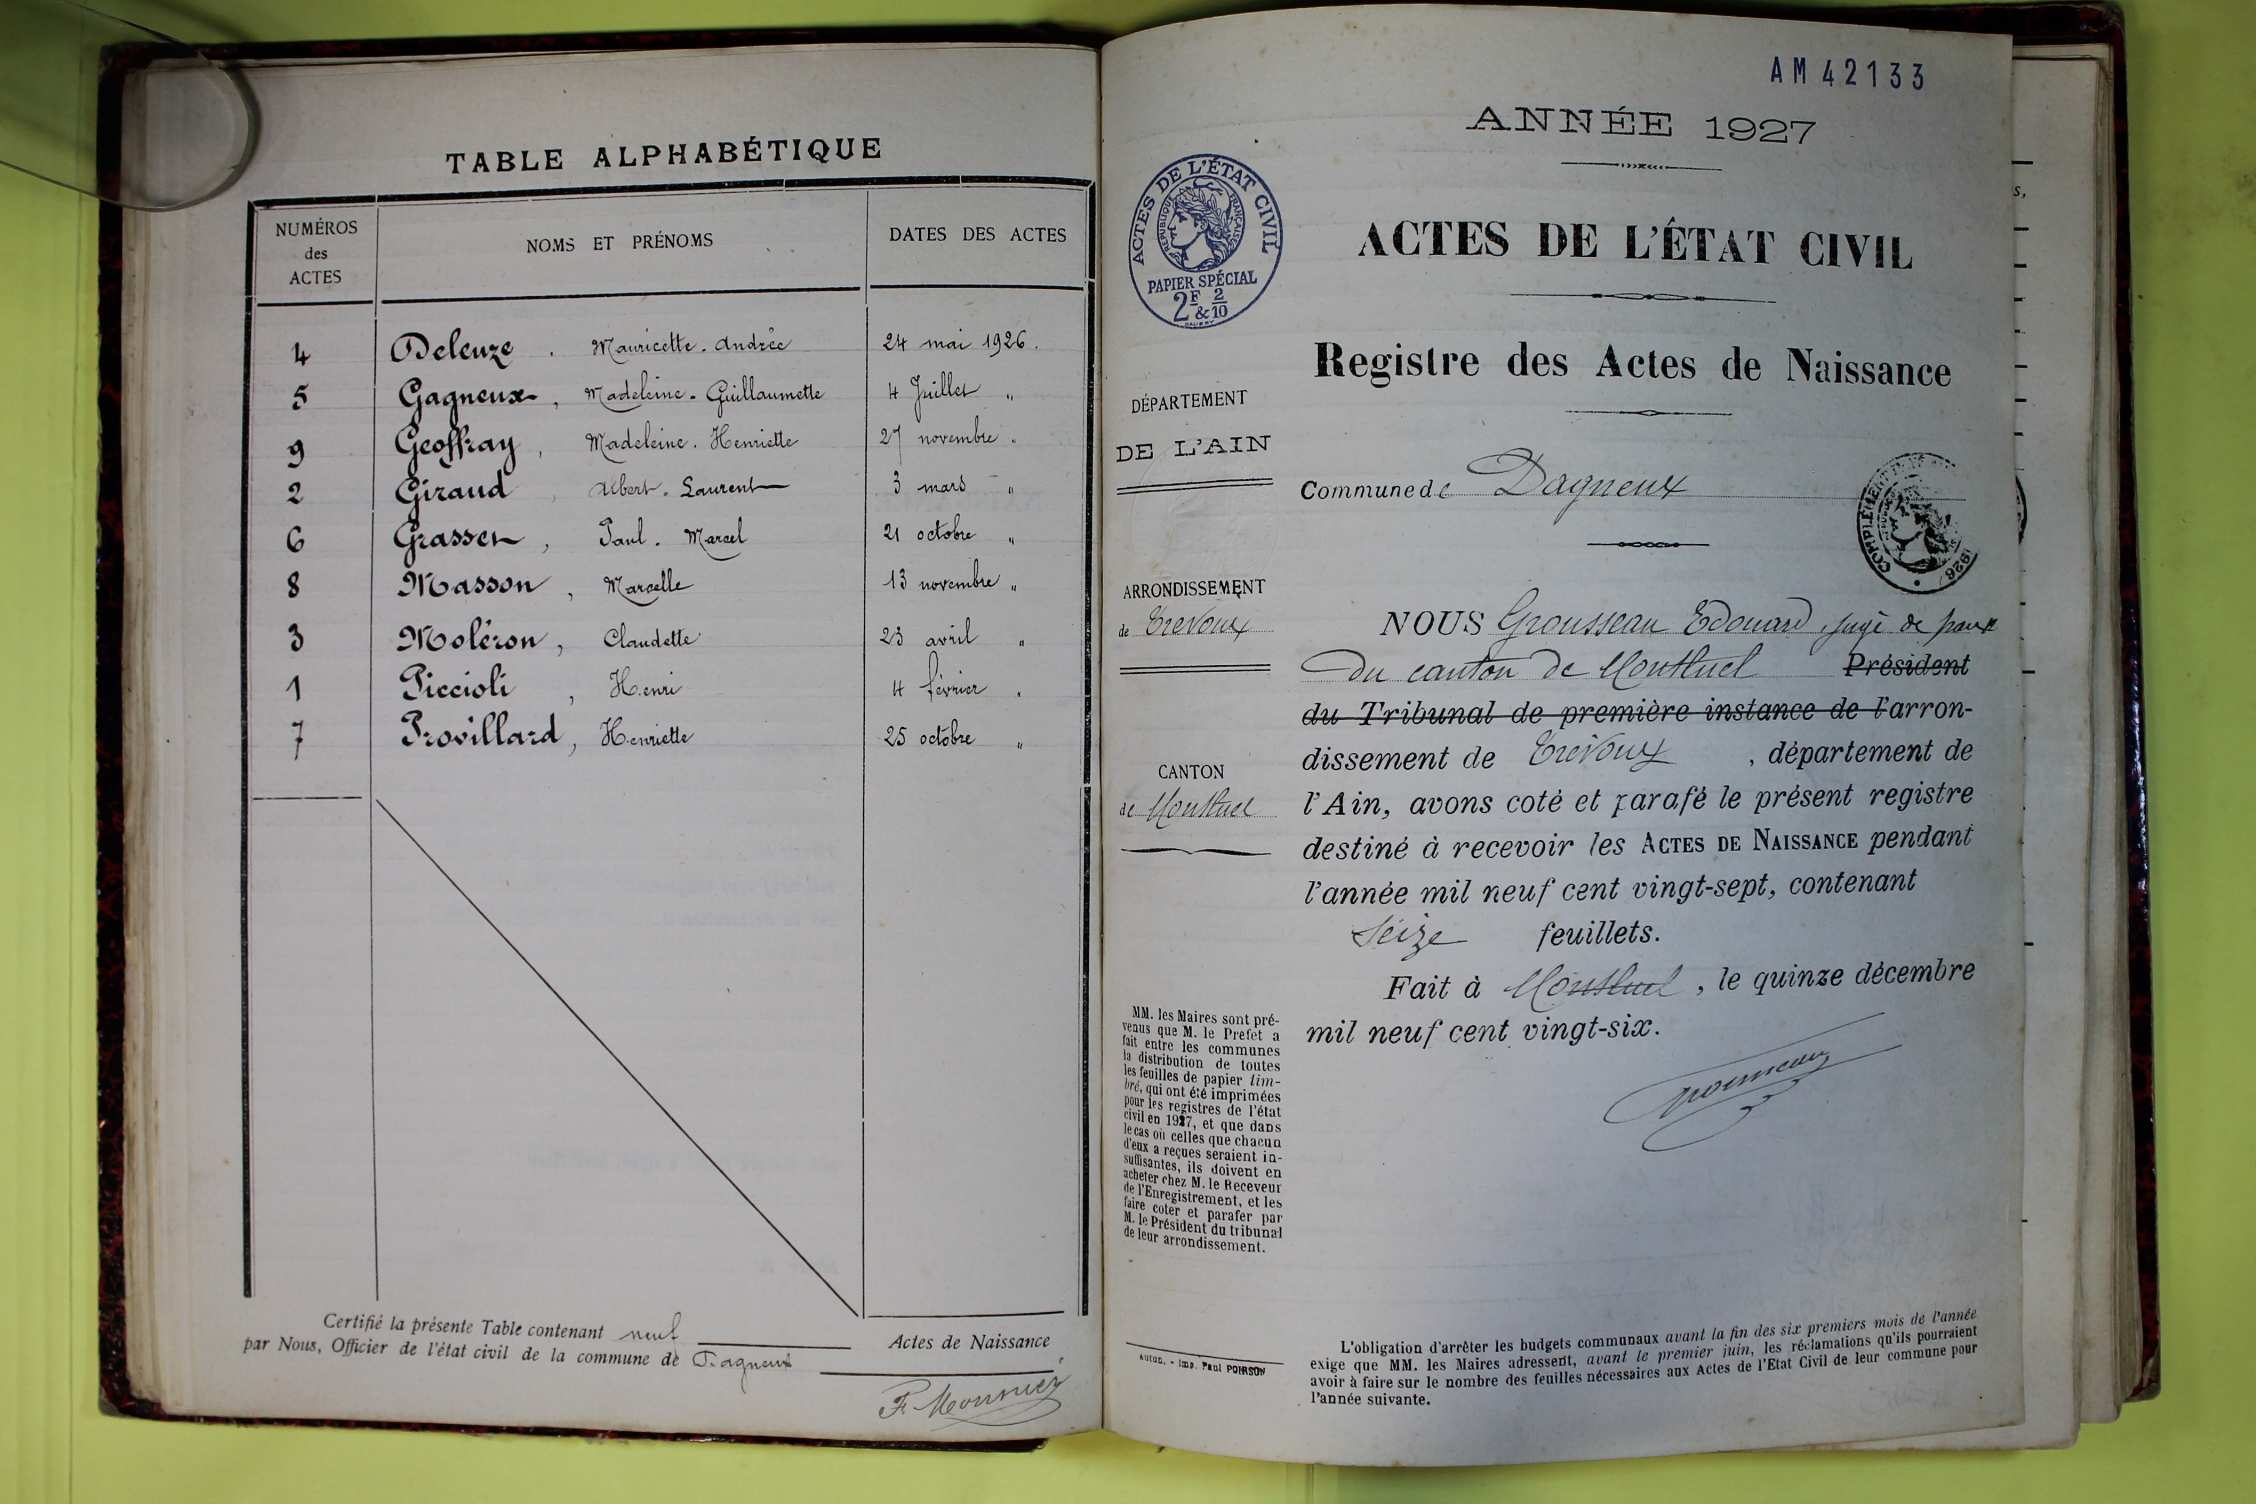 TABLE ALPHABÉTIQUE
NUMÉROS des ACTES
NOMS ET PRÉNOMS
DATES DES ACTES
4 Deleuze . Mauricette. Andrée 24 mai 1926.
5 Gagneux, Madeleine. Guillaumette 4 Juillet "
9 Geoffray, Madeleine. Henriette 27 novembre "
2 Giraud, Albert. Laurent 3 mars "
6 Grassen, Paul. Marcel 21 octobre "
8 Masson, Marcelle 13 novembre "
3 Moléron, Claudette 23 avril "
1 Piccioli, Henri 4 février "
7 Provillard, Henriette 25 octobre "
Certifié la présente Table contenant neuf Actes de Naissance
par Nous, Officier de l'état civil de la commune de Dagneux
F. Monnier
AM 42133
ANNÉE 1927
ACTES DE L'ÉTAT CIVIL
RÉPUBLIQUE FRANÇAISE
PAPIER SPÉCIAL
2F & 2/10
ACTES DE L'ÉTAT CIVIL
Registre des Actes de Naissance
DÉPARTEMENT
DE L'AIN
Commune de Dagneux
ARRONDISSEMENT
de Trévoux
CANTON
de Montluel
NOUS Grousseau Edouard, juge de paix
du canton de Montluel Président
du Tribunal de première instance de l'arron-
dissement de Trévoux, département de
l'Ain, avons coté et parafé le présent registre
destiné à recevoir les ACTES DE NAISSANCE pendant
l'année mil neuf cent vingt-sept, contenant
Seize feuillets.
Fait à Montluel, le quinze décembre
mil neuf cent vingt-six.
MM. les Maires sont pré-
venus que M. le Prefet a
fait entre les communes
la distribution de toutes
les feuilles de papier tim-
bré, qui ont été imprimées
pour les registres de l'état
civil en 1927, et que dans
le cas où celles que chacun
d'eux a reçues seraient in-
suffisantes, ils doivent en
acheter chez M. le Receveur
de l'Enregistrement, et les
faire coter et parafer par
M. le Président du tribunal
de leur arrondissement.
Autun. - Imp. Paul POIRSON
L'obligation d'arrêter les budgets communaux avant la fin des six premiers mois de l'année
exige que MM. les Maires adressent, avant le premier juin, les réclamations qu'ils pourraient
avoir à faire sur le nombre des feuilles nécessaires aux Actes de l'Etat Civil de leur commune pour
l'année suivante.